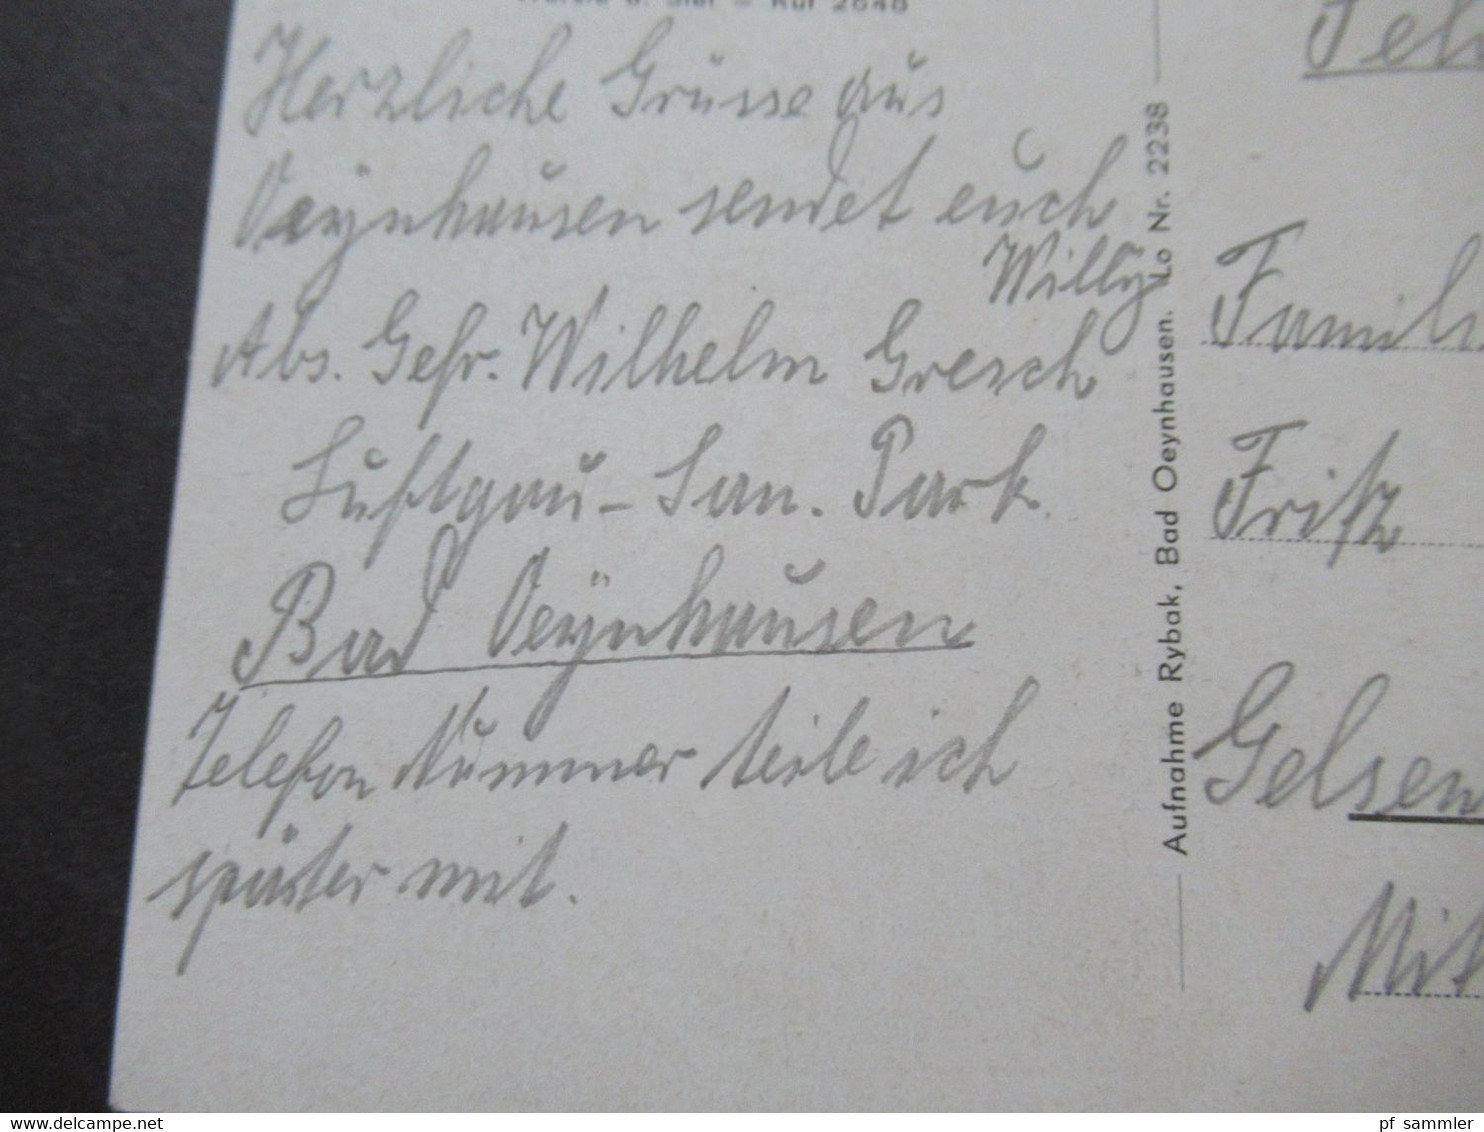 Ruf 2648
Herzliche Grüsse aus
Oeynhausen sendet euch
Willy
Abs. Gefr. Wilhelm Gresch
Luftgau-San. Park
Bad Oeynhausen
Telefon Nummer teile ich
später mit.
Aufnahme Rybak, Bad Oeynhausen. Lo Nr. 2238
Fel
Famili
Fritz
Gelsen
Mit
delcampe.net
pf_sammler